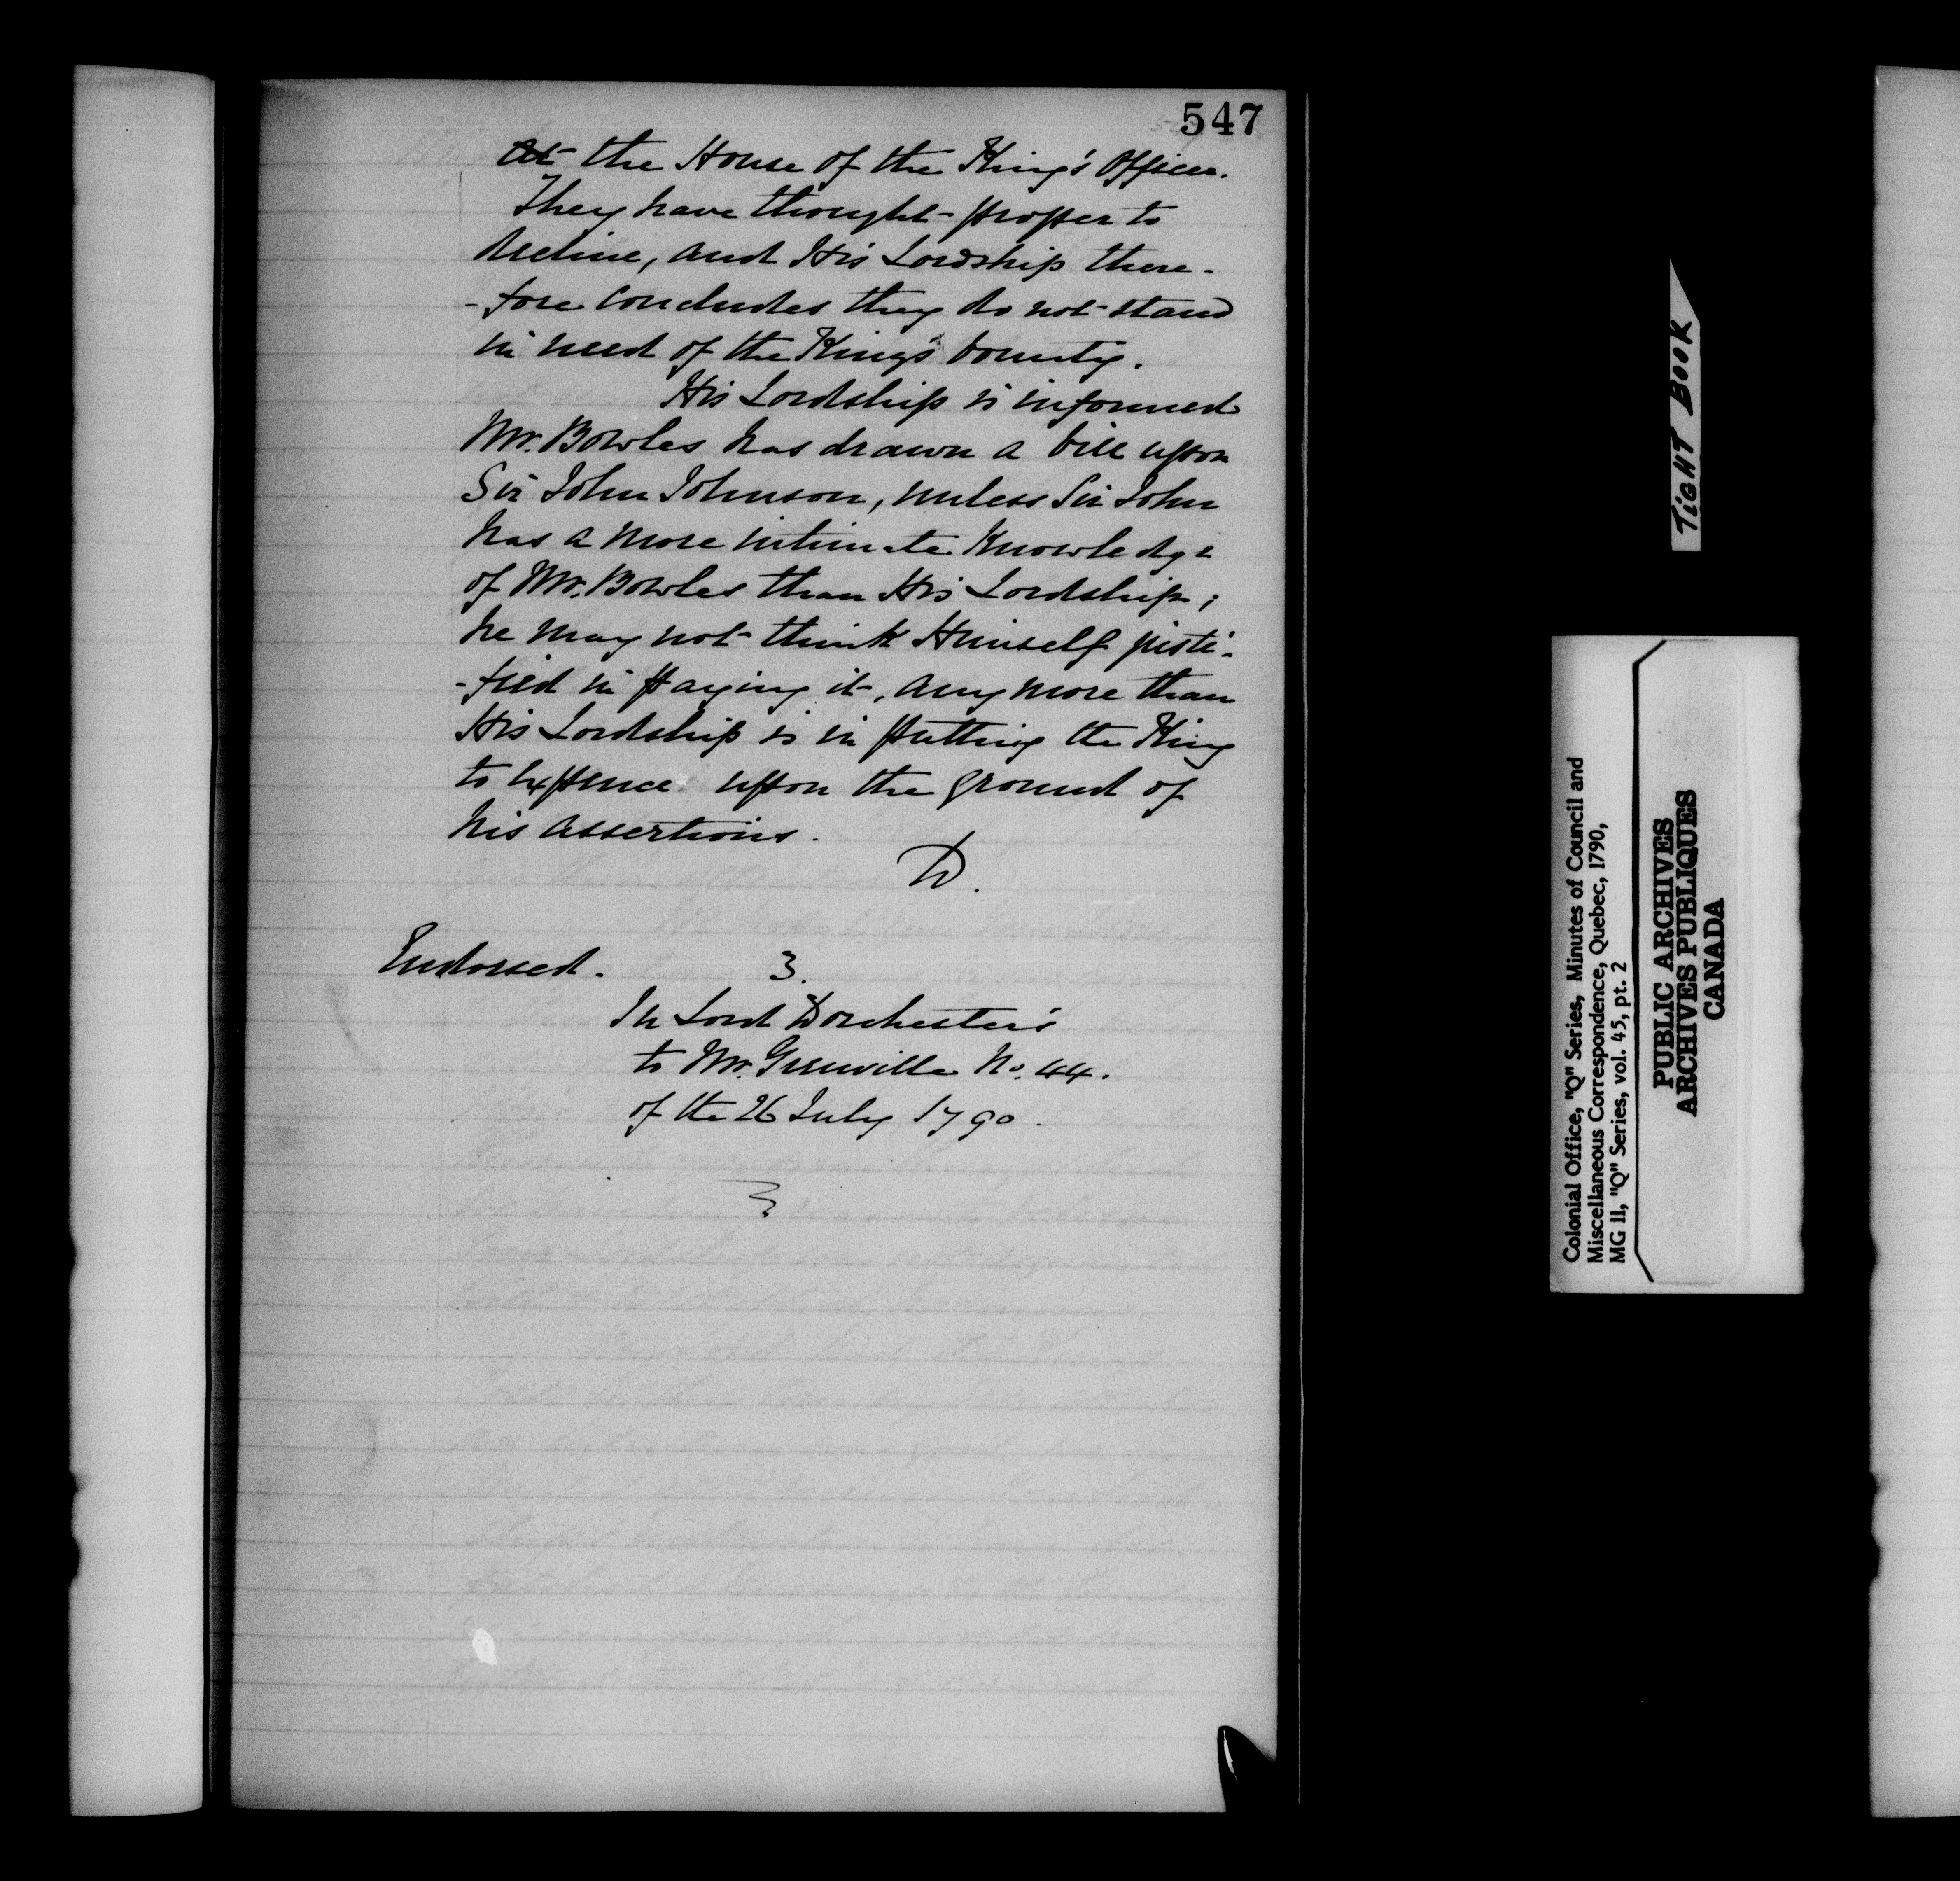 547
At the House of the King's Officer.
They have thought proper to
decline, and His Lordship there-
-fore concludes they do not stand
in need of the King's bounty.
His Lordship is informed
Mr. Bowles has drawn a bill upon
Sir John Johnson, unless Sir John
has a more intimate Knowledge
of Mr. Bowles than His Lordship;
he may not think Himself justi-
-fied in paying it, any more than
His Lordship is in putting the King
to Expence upon the ground of
his assertions.
D.
Endorsed. 3.
In Lord Dorchester's
to Mr. Grenville No. 44.
of the 26 July 1790.
TIGHT BOOK
Colonial Office, "Q" Series, Minutes of Council and
Miscellaneous Correspondence, Quebec, 1790,
MG 11, "Q" Series, vol. 45, pt. 2
PUBLIC ARCHIVES
ARCHIVES PUBLIQUES
CANADA